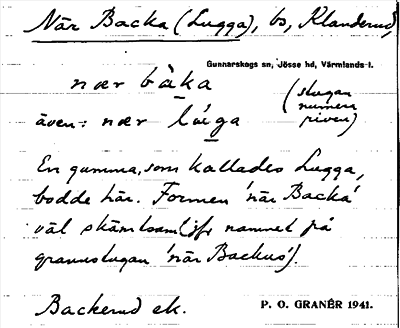 När Backa (Lugga), bs, Klanderud,
Gunnarskogs sn, Jösse hd, Värmlands l.
nær bàka (stugan
numera
riven)
även: nær lúga
En gumma, som kallades Lugga,
bodde här. Formen 'när Backa'
väl skämtsam (jfr namnet på
grannstugan 'när Backus').
Backerud ek.
P. O. GRANÉR 1941.